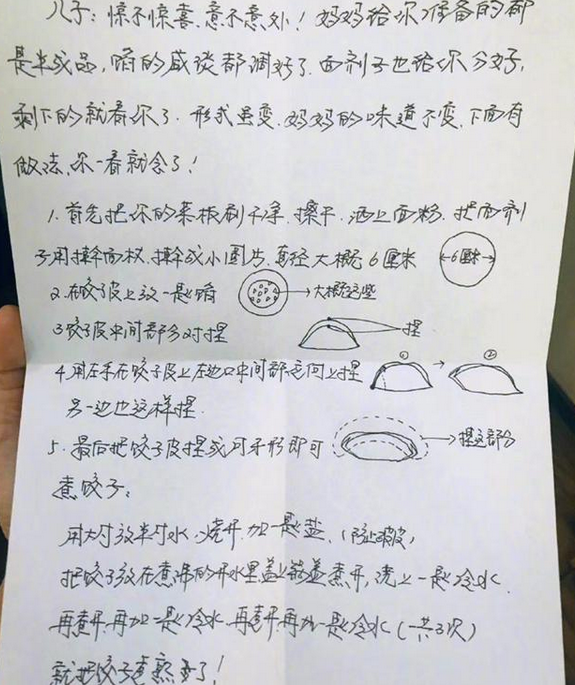 儿子：惊不惊喜、意不意外！妈妈给你准备的都
是半成品，馅的咸淡都调好了．面剂子也给你分好，
剩下的就看你了．形式虽变．妈妈的味道不变．下面有
做法．你一看就会了！
1．首先把你的菜板刷干净．擦干．洒上面粉．把面剂
子用擀面杖．擀成小圆片．直径大概6厘米
←6厘米→
2．在饺子皮上放一些馅
大概这些
3 饺子皮中间部分对捏
捏
4．用左手在饺子皮上左边口中间部 向上捏
① ②
另一边也这样捏．
5．最后把饺子皮捏成月牙形即可
捏这部分
煮饺子：
用大 放半 水．烧开．加一些盐．（防止破皮）
把饺子放在煮沸的开水里盖上锅盖煮开，浇上一些冷水．
再煮开．再加一些冷水．再煮开．再加一些冷水（共3次）
就把饺子煮熟 了！